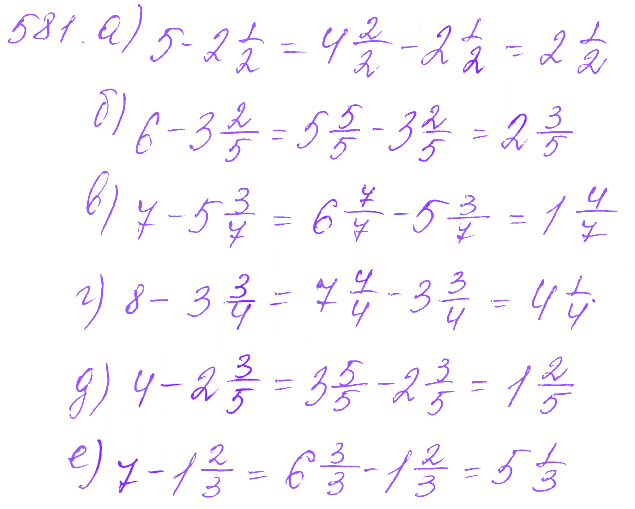 581. а) 5 - 2 1/2 = 4 2/2 - 2 1/2 = 2 1/2
б) 6 - 3 2/5 = 5 5/5 - 3 2/5 = 2 3/5
в) 7 - 5 3/7 = 6 7/7 - 5 3/7 = 1 4/7
г) 8 - 3 3/4 = 7 4/4 - 3 3/4 = 4 1/4.
д) 4 - 2 3/5 = 3 5/5 - 2 3/5 = 1 2/5
е) 7 - 1 2/3 = 6 3/3 - 1 2/3 = 5 1/3